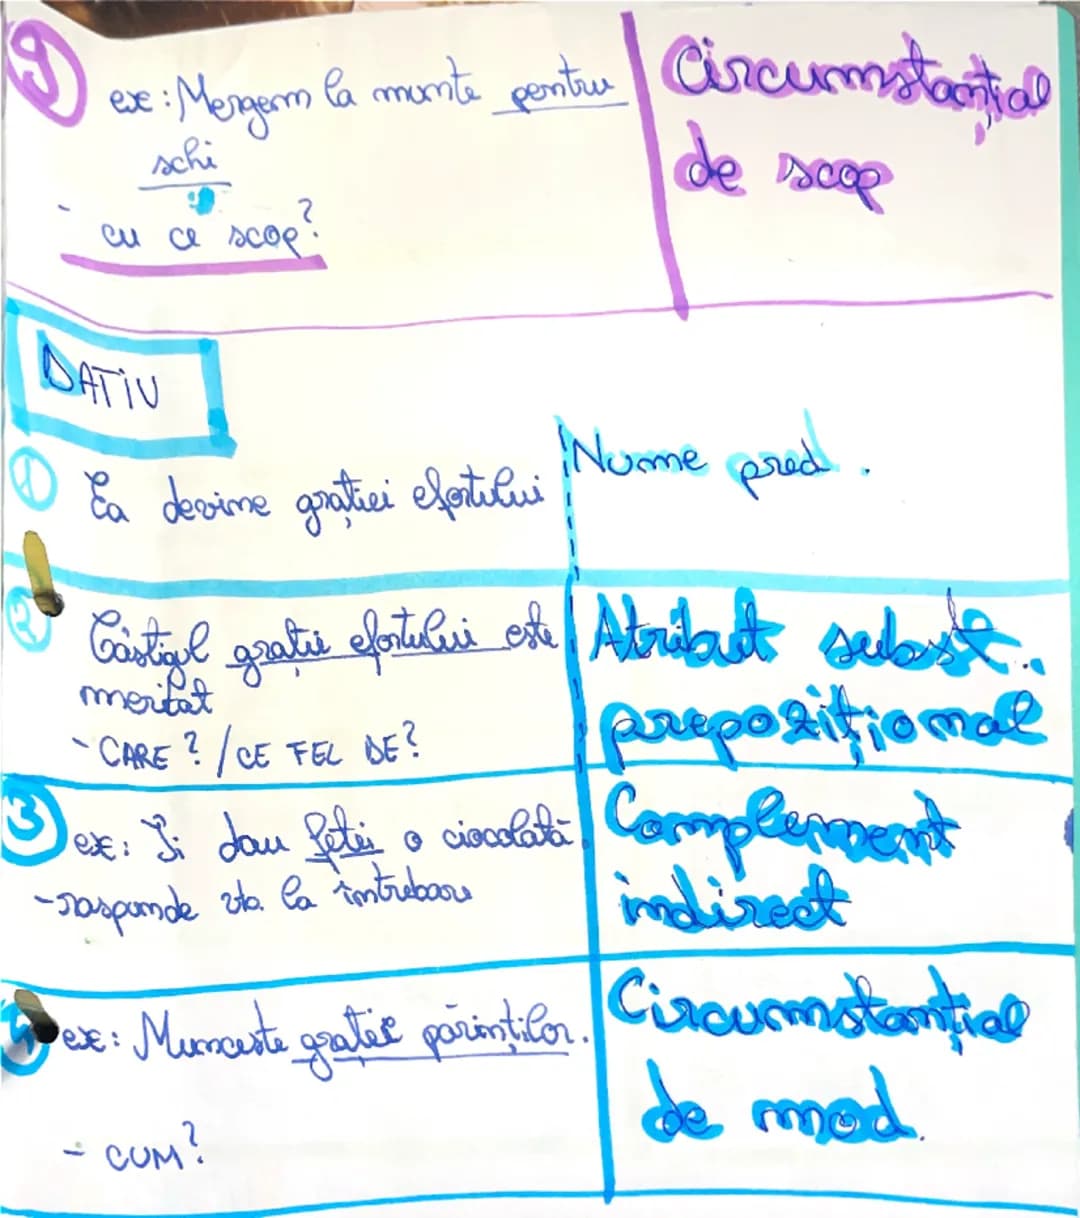 9
ex: Mergem la munte pentru
schi
- cu ce scop?
Circumstanțial
de scop
DATIV
1 Ea devine grației efortului
Nume pred.
2 Câștigul grație efortului este
meritat
- CARE? / CE FEL DE?
Atribut subst.
prepozițional
3 ex: Îi dau fetei o ciocolată
- raspunde la întrebare
Complement
indirect
4 ex: Muncește grație părinților.
- CUM?
Circumstanțial
de mod.